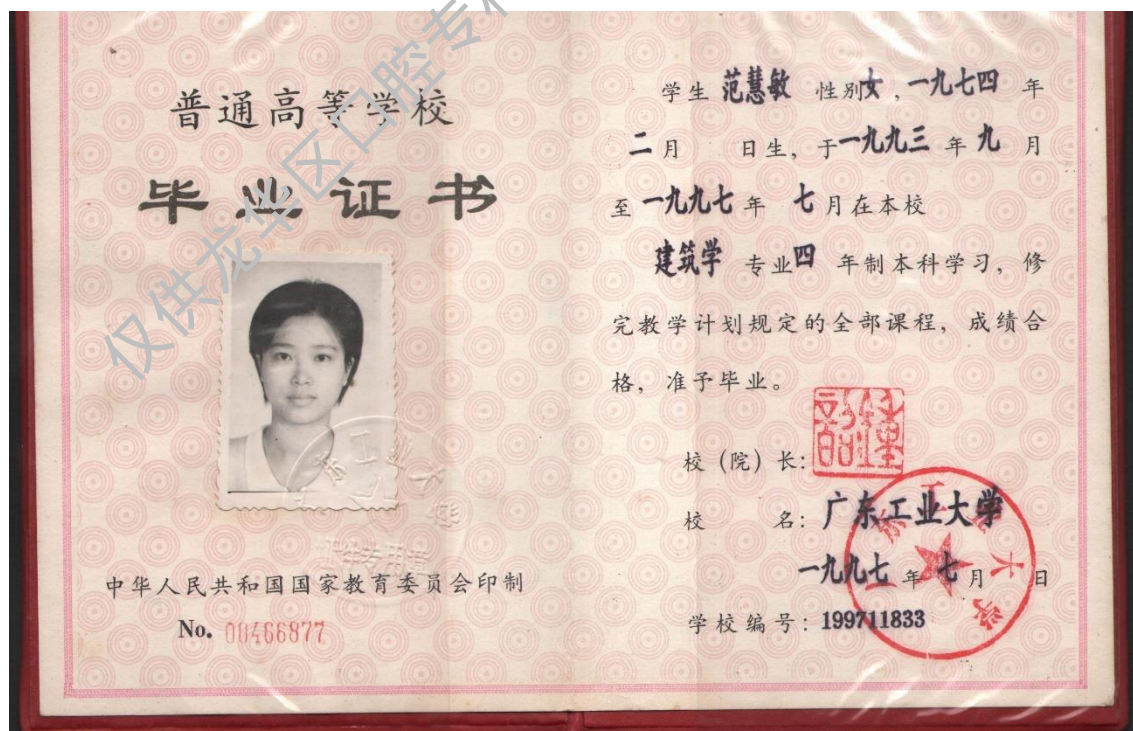 普通高等学校
毕业证书
中华人民共和国国家教育委员会印制
No. 00466877
学生 范慧敏 性别女，一九七四 年
二月 日生，于一九九三 年 九 月
至 一九九七 年 七 月在本校
建筑学 专业四 年制本科学习，修
完教学计划规定的全部课程，成绩合
格，准予毕业。
校（院）长：
校 名：广东工业大学
一九九七 年 七 月 日
学校编号：199711833
仅供龙华区口腔专科